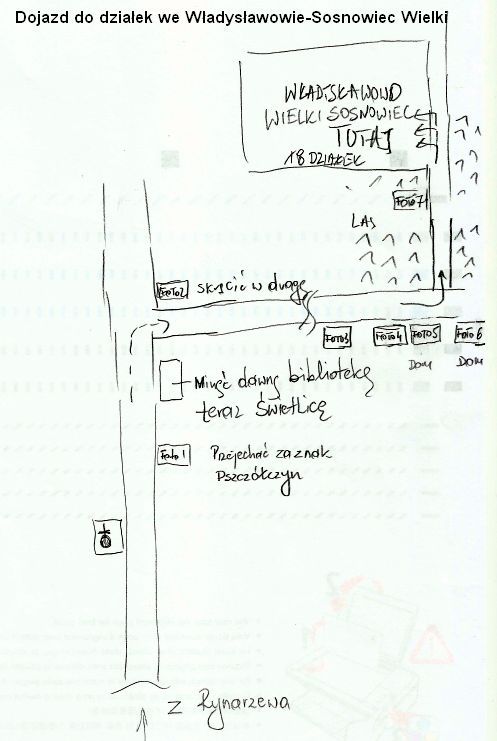 Dojazd do działek we Władysławowie-Sosnowiec Wielki
WŁADYSŁAWOWO
WIELKI SOSNOWIEC
TUTAJ
18 DZIAŁEK
FOTO 7
LAS
FOTO 2 SKRĘCIĆ W drogę
FOTO 3 FOTO 4 FOTO 5 FOTO 6
DOM DOM
Minąć dawną bibliotekę
teraz Świetlicę
Foto 1 Przejechać za znak
Pszczółczyn
Z Rynarzewa